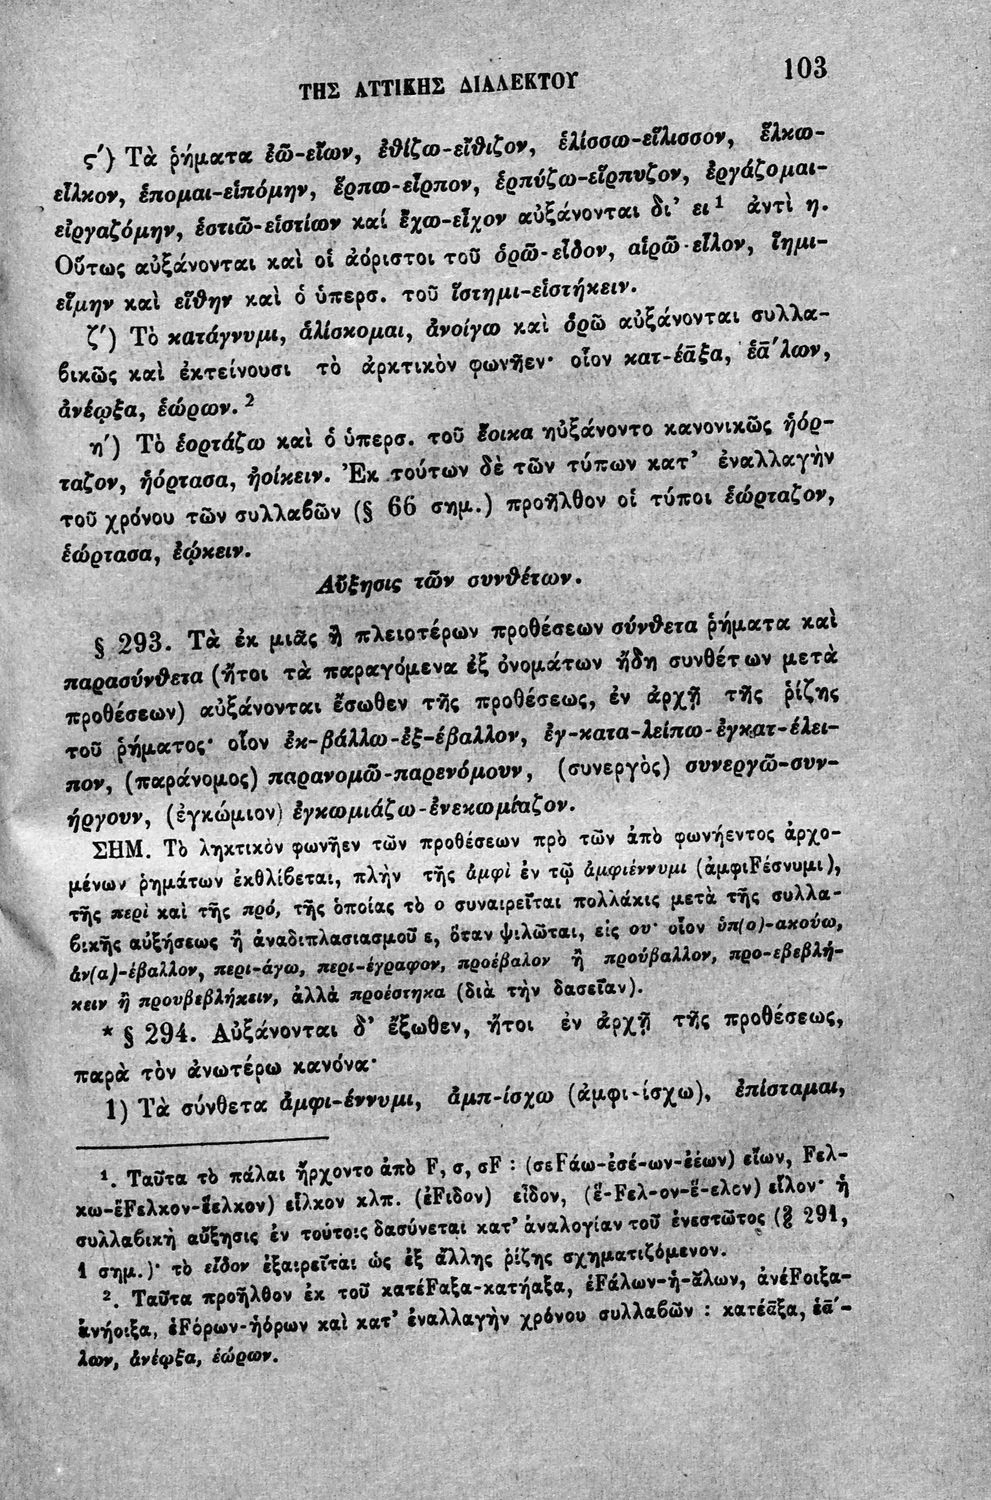 ΤΗΣ ΑΤΤΙΚΗΣ ΔΙΑΛΕΚΤΟΥ 103
ϛ′) Τὰ ῥήματα ἐῶ-εἴων, ἐθίζω-εἴθιζον, ἑλίσσω-εἵλισσον, ἕλκω-
εἷλκον, ἕπομαι-εἱπόμην, ἕρπω-εἷρπον, ἑρπύζω-εἷρπυζον, ἐργάζομαι-
εἰργαζόμην, ἑστιῶ-εἱστίων καί ἔχω-εἶχον αὐξάνονται δι’ ει¹ ἀντὶ η.
Οὕτως αὐξάνονται καὶ οἱ ἀόριστοι τοῦ ὁρῶ-εἶδον, αἱρῶ-εἷλον, ἵημι-
εἵμην καὶ εἵθην καὶ ὁ ὑπερσ. τοῦ ἵστημι-εἱστήκειν.
ζ′) Τὸ κατάγνυμι, ἁλίσκομαι, ἀνοίγω καὶ ὁρῶ αὐξάνονται συλλα-
βικῶς καὶ ἐκτείνουσι τὸ ἀρκτικὸν φωνῆεν· οἷον κατ-έᾱξα, ἑᾱ́λων,
ἀνέῳξα, ἑώρων.²
η′) Τὸ ἑορτάζω καὶ ὁ ὑπερσ. τοῦ ἔοικα ηὐξάνοντο κανονικῶς ἠόρ-
ταζον, ἠόρτασα, ἠοίκειν. Ἐκ τούτων δὲ τῶν τύπων κατ’ ἐναλλαγὴν
τοῦ χρόνου τῶν συλλαβῶν (§ 66 σημ.) προῆλθον οἱ τύποι ἑώρταζον,
ἑώρτασα, ἐῴκειν.
Αὔξησις τῶν συνθέτων.
§ 293. Τὰ ἐκ μιᾶς ἢ πλειοτέρων προθέσεων σύνθετα ῥήματα καὶ
παρασύνθετα (ἤτοι τὰ παραγόμενα ἐξ ὀνομάτων ἤδη συνθέτων μετὰ
προθέσεων) αὐξάνονται ἔσωθεν τῆς προθέσεως, ἐν ἀρχῇ τῆς ῥίζης
τοῦ ῥήματος· οἷον ἐκ-βάλλω-ἐξ-έβαλλον, ἐγ-κατα-λείπω-ἐγκατ-έλει-
πον, (παράνομος) παρανομῶ-παρενόμουν, (συνεργὸς) συνεργῶ-συν-
ήργουν, (ἐγκώμιον) ἐγκωμιάζω-ἐνεκωμίαζον.
ΣΗΜ. Τὸ ληκτικὸν φωνῆεν τῶν προθέσεων πρὸ τῶν ἀπὸ φωνήεντος ἀρχο-
μένων ῥημάτων ἐκθλίβεται, πλὴν τῆς ἀμφὶ ἐν τῷ ἀμφιέννυμι (ἀμφιFέσνυμι),
τῆς περὶ καὶ τῆς πρό, τῆς ὁποίας τὸ ο συναιρεῖται πολλάκις μετὰ τῆς συλλα-
βικῆς αὐξήσεως ἢ ἀναδιπλασιασμοῦ ε, ὅταν ψιλῶται, εἰς ου· οἷον ὑπ(ο)-ακούω,
ἀν(α)-έβαλλον, περι-άγω, περι-έγραφον, προέβαλον ἢ προύβαλλον, προ-εβεβλή-
κειν ἢ προυβεβλήκειν, ἀλλὰ προέστηκα (διὰ τὴν δασεῖαν).
* § 294. Αὐξάνονται δ’ ἔξωθεν, ἤτοι ἐν ἀρχῇ τῆς προθέσεως,
παρὰ τὸν ἀνωτέρω κανόνα·
1) Τὰ σύνθετα ἀμφι-έννυμι, ἀμπ-ίσχω (ἀμφι-ίσχω), ἐπίσταμαι,
¹. Ταῦτα τὸ πάλαι ἤρχοντο ἀπὸ F, σ, σF : (σεFάω-ἐσέ-ων-ἐέων) εἴων, Fελ-
κω-ἔFελκον-ἔελκον) εἷλκον κλπ. (ἐFιδον) εἶδον, (ἔ-Fελ-ον-ἔ-ελον) εἷλον· ἡ
συλλαβικὴ αὔξησις ἐν τούτοις δασύνεται κατ’ ἀναλογίαν τοῦ ἐνεστῶτος (§ 291,
1 σημ.)· τὸ εἶδον ἐξαιρεῖται ὡς ἐξ ἄλλης ῥίζης σχηματιζόμενον.
². Ταῦτα προῆλθον ἐκ τοῦ κατέFαξα-κατήαξα, ἐFάλων-ἡ-άλων, ἀνέFοιξα-
ἀνήοιξα, ἐFόρων-ἠόρων καὶ κατ’ ἐναλλαγὴν χρόνου συλλαβῶν : κατέᾱξα, ἑᾱ́-
λων, ἀνέῳξα, ἑώρων.